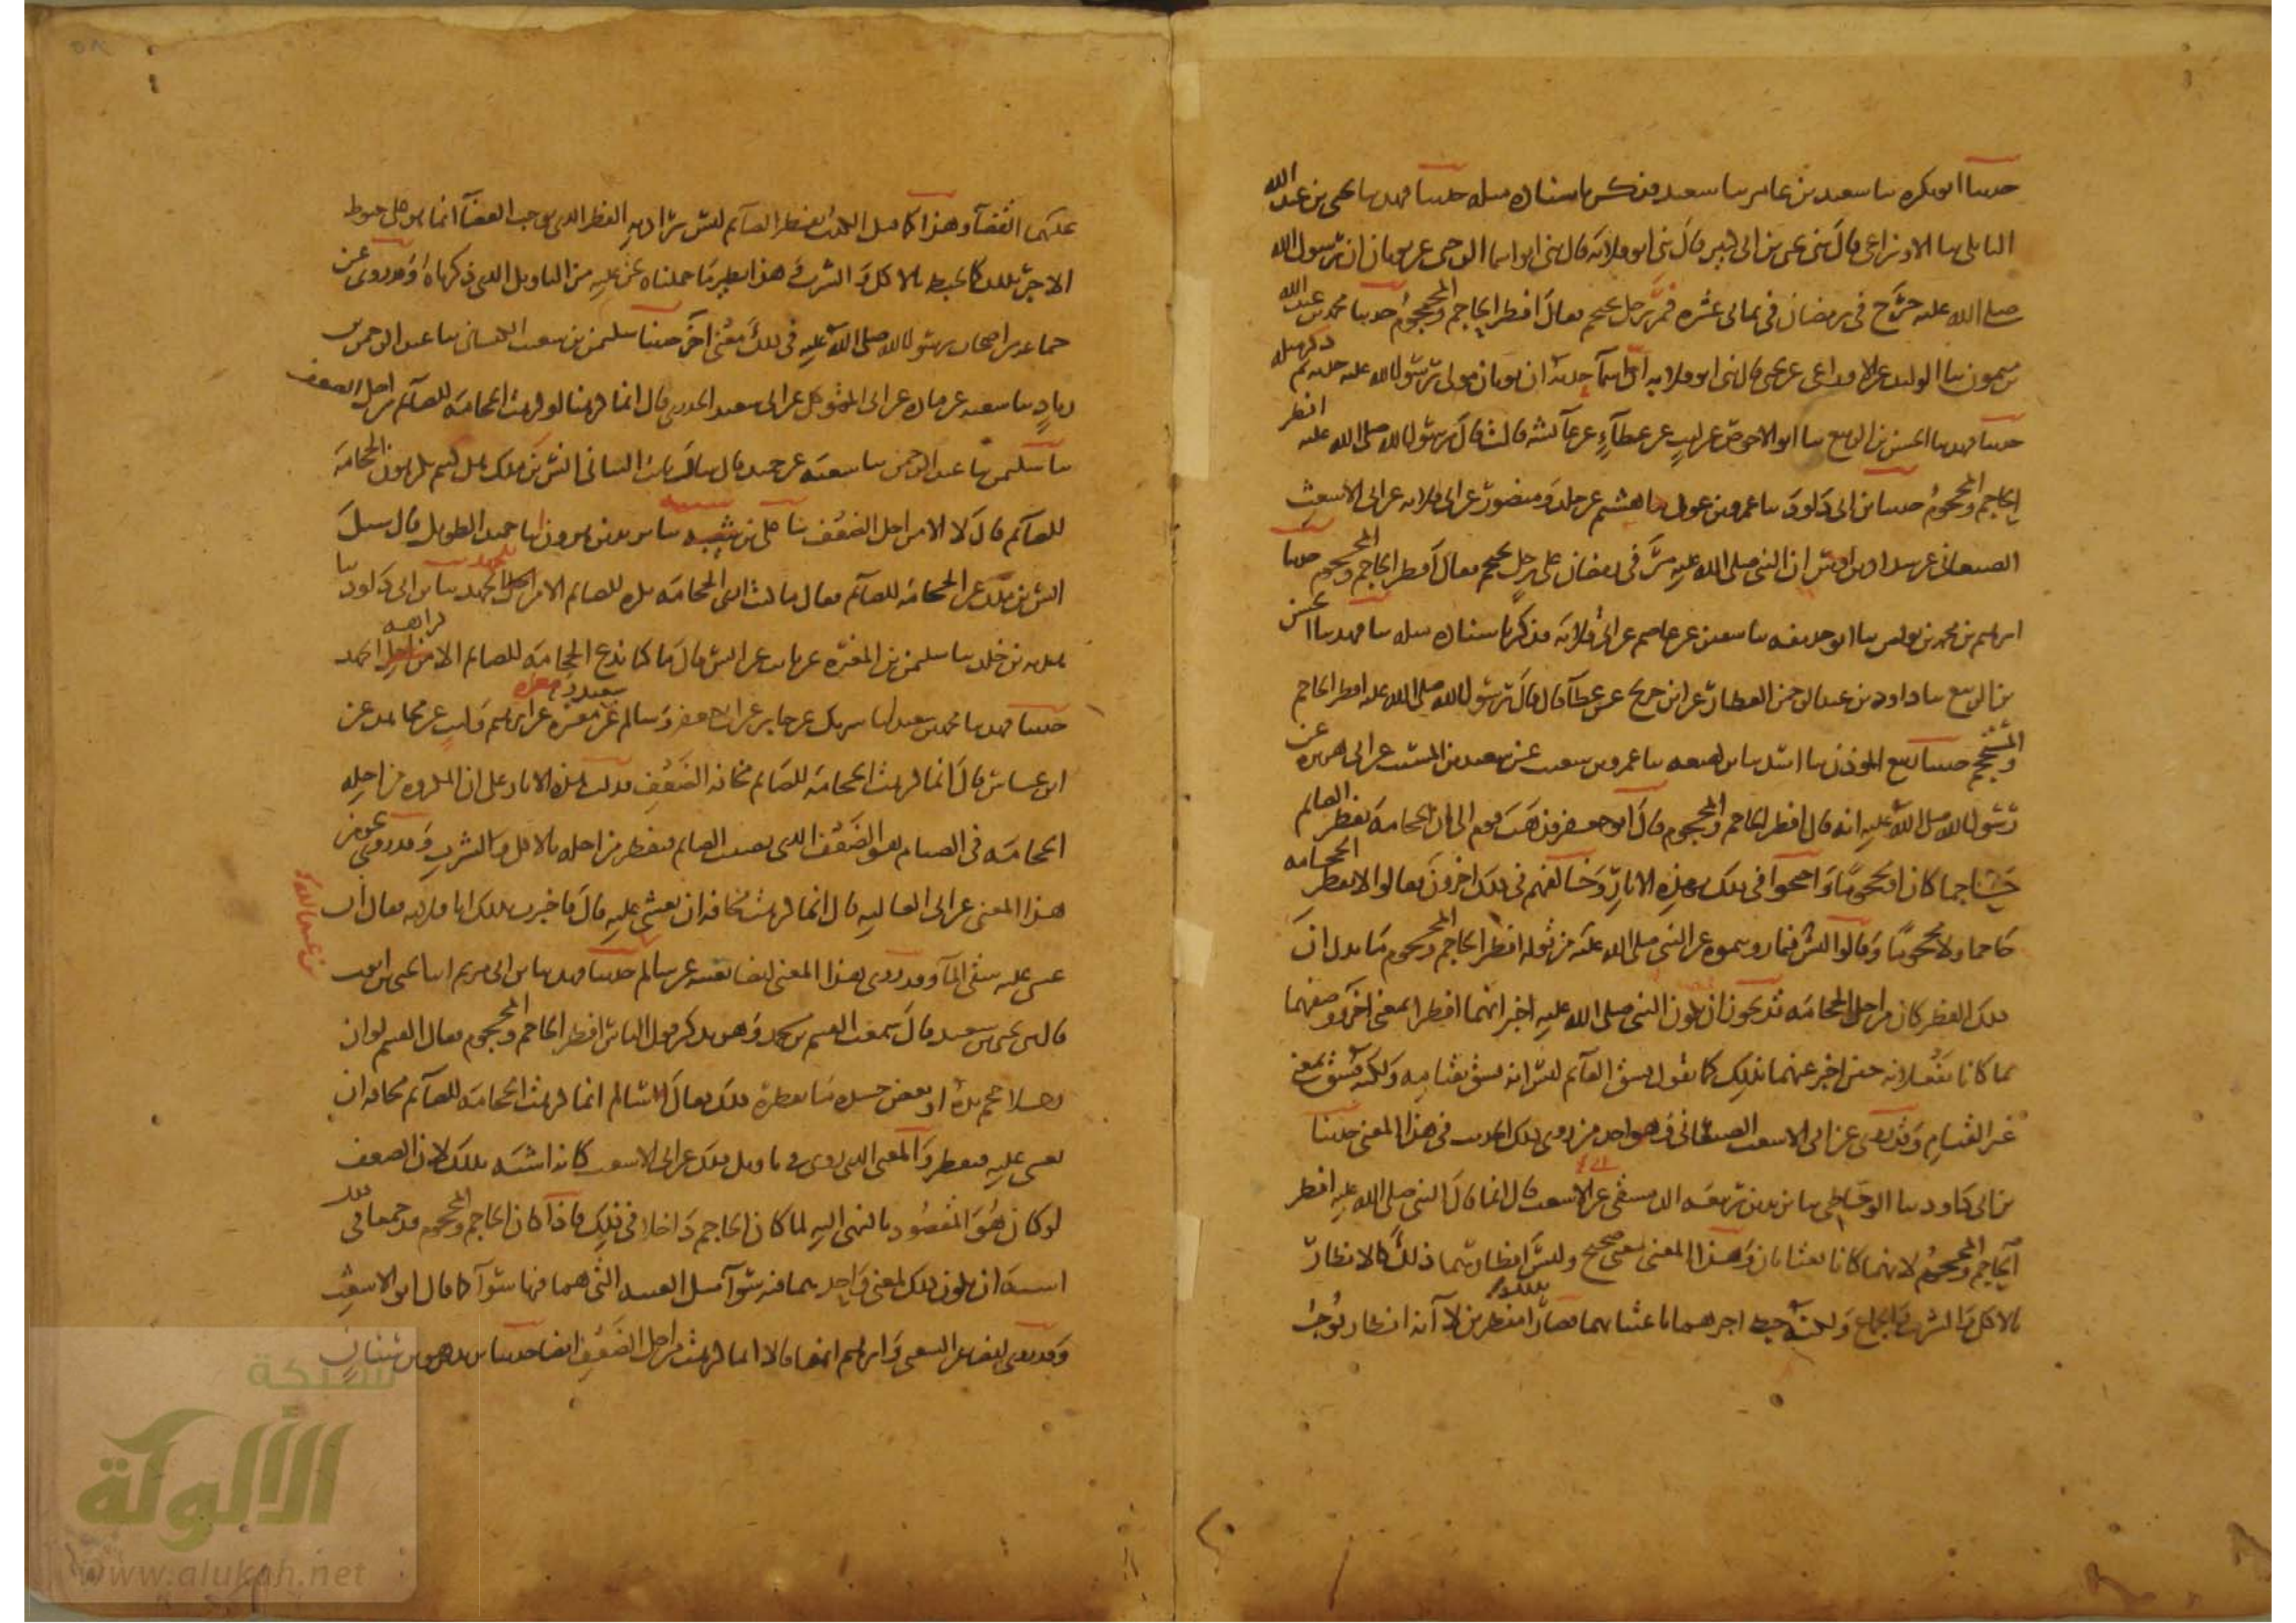 حدثنا ابو بكره ثنا سعيد بن عامر ثنا سعيد فذكر باسناده مثله حدثنا فهد ثنا يحيى بن عبد الله
البابلتي ثنا الاوزاعي قال ثني يحيى بن ابي كثير قال ثني ابو قلابه قال ثني ابو اسما الرحبي عن ثوبان ان رسول الله
صلى الله عليه خرج في رمضان في ثماني عشره فمر برجل يحتجم فقال افطر الحاجم والمحجوم حدثنا محمد بن عبد الله
بن ميمون ثنا الوليد عن الاوزاعي عن يحيى قال ثني ابو قلابه ان ابا اسما حدثه ان ثوبان مولى رسول الله عليه حدثه ثم ذكر مثله
حدثنا فهد ثنا الحسن بن الربيع ثنا ابو الاحوص عن ليث عن عطاء عن عائشه قالت قال رسول الله صلى الله عليه افطر
الحاجم والمحجوم حدثنا بن ابي داود ثنا عمرو بن عون ثنا هشيم عن خلد ومنصور عن ابي قلابه عن ابي الاشعث
الصنعاني عن شداد بن اوس ان النبي صلى الله عليه مر في رمضان على رجل يحتجم فقال افطر الحاجم والمحجوم حدثنا
ابرهيم بن محمد بن يونس ثنا ابو حذيفه ثنا سفين عن عاصم عن ابي قلابه فذكر باسناده مثله ثنا فهد ثنا الحسن
بن الربيع ثنا داود بن عبد الرحمن العطار عن ابن جريج عن عطا قال قال رسول الله صلى الله عليه افطر الحاجم
والمستحجم حدثنا ربيع المؤذن ثنا اسد ثنا بن لهيعه ثنا عمرو بن شعيب عن سعيد بن المسيب عن ابي هريره عن
رسول الله صلى الله عليه انه قال افطر الحاجم والمحجوم قال ابو جعفر فذهب قوم الى ان الحجامه تفطر الصائم
حاجما كان او محجوما واحتجوا في ذلك بهذه الاثار وخالفهم في ذلك اخرون فقالوا لا تفطر الحجامه
حاجما ولا محجوما وقالوا ليس فيما رويتموه عن النبي صلى الله عليه من قوله افطر الحاجم والمحجوم ما يدل ان
ذلك الفطر كان من اجل الحجامه قد يجوز ان يكون النبي صلى الله عليه اخبر انهما افطرا بمعنى اخر وصفهما
بما كانا يفعلانه حين اخبر عنهما بذلك كما تقول فسق القائم ليس انه فسق بقيامه ولكنه فسق بمعنى
غير القيام وقد روي عن ابي الاشعث الصنعاني وهو احد من روى ذلك الحديث في هذا المعنى حدثنا
بن ابي داود ثنا الوحاظي ثنا يزيد بن ربيعه الدمشقي عن ابي الاشعث قال انما قال النبي صلى الله عليه افطر
الحاجم والمحجوم لانهما كانا يغتابان وهذا المعنى معنى صحيح وليس افطارهما ذلك كالافطار
بالاكل والشرب والجماع ولكنه حبط اجرهما باغتيابهما فصارا بذلك مفطرين لا انه افطار يوجب
عليهما القضاء وهذا كما قيل الكذب يفطر الصائم ليس يراد به الفطر الذي يوجب القضا انما هو على حبوط
الاجر بذلك كما يحبط بالاكل والشرب وهذا نظير ما حملناه نحن عليه من التاويل الذي ذكرناه وقد روي عن
جماعه من اصحاب رسول الله صلى الله عليه في ذلك معنى اخر حدثنا سليمن بن شعيب الكيساني ثنا عبد الرحمن بن
زياد ثنا شعبه عن قتاده عن ابي المتوكل عن ابي سعيد الخدري قال انما كرهنا او كرهت الحجامه للصائم من اجل الضعف
ثنا سليمن ثنا عبد الرحمن ثنا شعبه عن حميد قال سال ثابت البناني انس بن ملك هل كنتم تكرهون الحجامه
للصائم قال لا الا من اجل الضعف ثنا علي بن شيبه ثنا يزيد بن هرون انا حميد الطويل قال سئل
انس بن ملك عن الحجامه للصائم فقال ما كنت ارى الحجامه تكره للصائم الا من الجهد ثنا بن ابي داود ثنا
هدبه بن خلد ثنا سليمن بن المغيره عن ثابت عن انس قال ما كنا ندع الحجامه للصائم الا كراهه الجهد
حدثنا فهد ثنا محمد بن سعيد انا شريك عن جابر عن ابي جعفر وسالم عن سعيد ومغيره عن ابرهيم وليث عن مجاهد عن
ابن عباس قال انما كرهت الحجامه للصائم مخافه الضعف فدلت هذه الاثار على ان المكروه من اجله
الحجامه في الصيام هو الضعف الذي يصيب الصائم فيفطر من اجله بالاكل والشرب وقد روي نحو من
هذا المعنى عن ابي العاليه قال انما كرهت مخافه ان يغشى عليه قال فاخبرت بذلك ابا قلابه فقال ان
غشي عليه سقي الما وقد روي هذا المعنى ايضا بعينه عن سالم بن عبد الله حدثنا فهد ثنا بن ابي مريم انا يحيى بن ايوب
قال ثني يحيى بن سعيد قال سمعت القسم بن محمد وهو يذكر قول الناس افطر الحاجم والمحجوم فقال القسم لو ان
رجلا حجم يده او بعض جسده ما يفطره ذلك فقال سالم انما كرهت الحجامه للصائم مخافه ان
يغشى عليه فيفطر والمعنى الذي روي في تاويل ذلك عن ابي الاشعث كانه اشبه بذلك لان الضعف
لو كان هو المقصود بالنهي اليه لما كان الحاجم داخلا في ذلك فاذا كان الحاجم والمحجوم قد جمعا في ذلك
اشبه ان يكون ذلك لمعنى واحد هما فيه سوآ مثل الغيبه التي هما فيها سوآ كما قال ابو الاشعث
وقد روي ايضا عن الشعبي وابرهيم انهما قالا انما كرهت من اجل الضعف ايضا حدثنا
شبكة
الألوكة
www.alukah.net